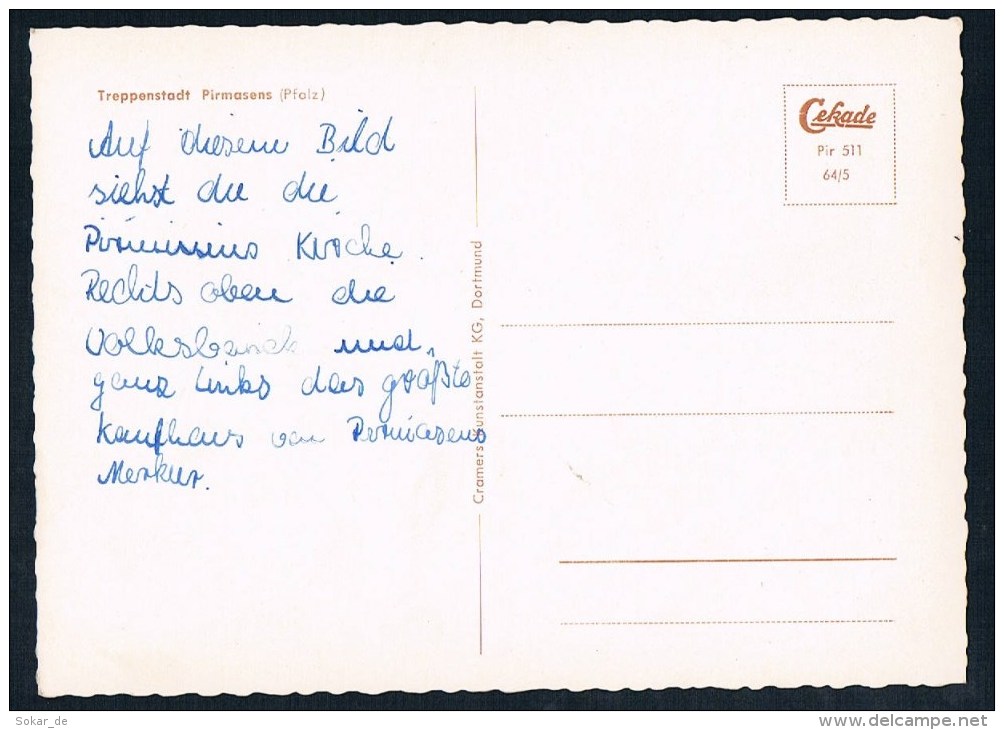 Treppenstadt Pirmasens (Pfalz)
Auf diesem Bild
siehst du die
Pirmissens Kirche.
Rechts oben die
Volksbank und
ganz links das größte
Kaufhaus von Pirmasens
Merkur.
Cramers Kunstanstalt KG, Dortmund
Cekade
Pir 511
64/5
Sokar_de
www.delcampe.net